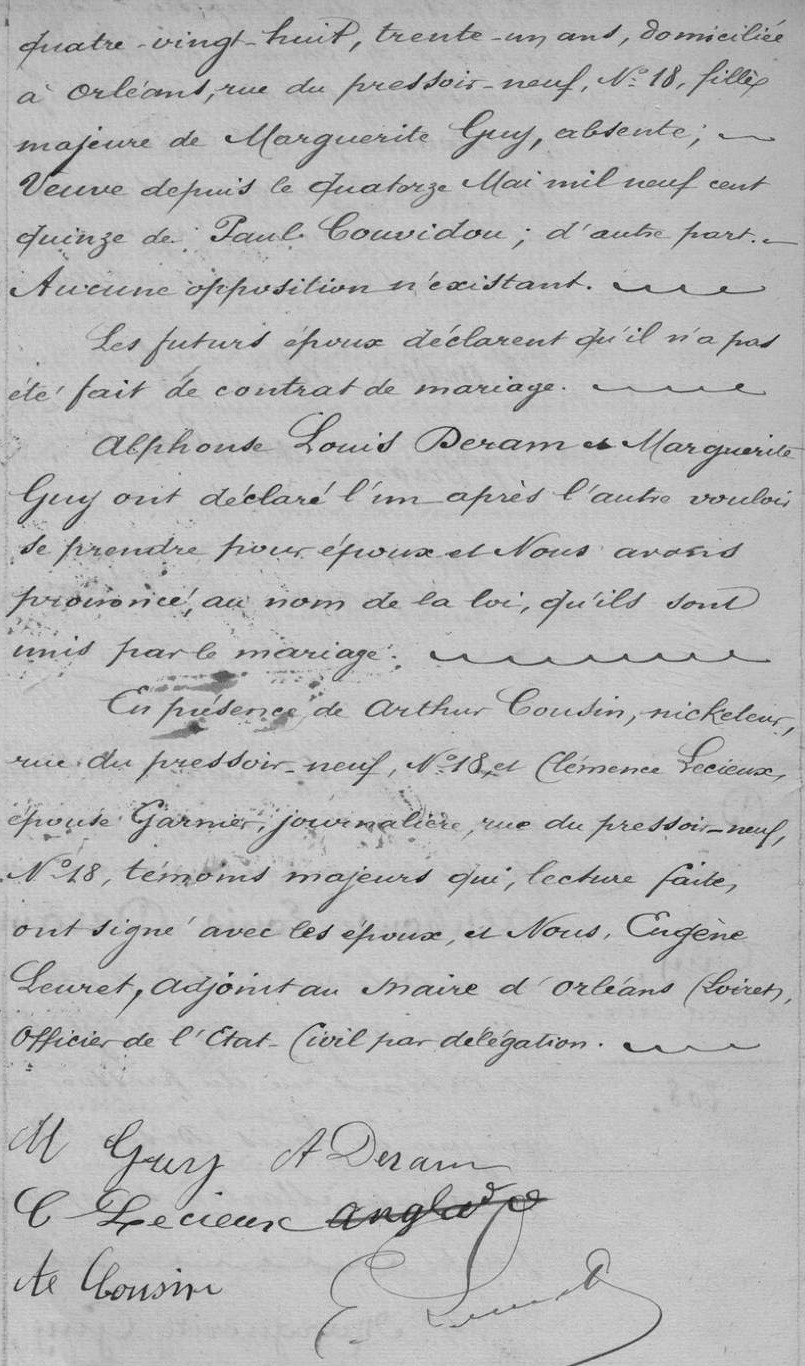 quatre-vingt-huit, trente-un ans, domiciliée
à Orléans, rue du pressoir-neuf, N° 18, fille
majeure de Marguerite Guy, absente;
Veuve depuis le quatorze Mai mil neuf cent
quinze de Paul Couvidou; d'autre part.
Aucune opposition n'existant.
Les futurs époux déclarent qu'il n'a pas
été fait de contrat de mariage.
Alphonse Louis Deram et Marguerite
Guy ont déclaré l'un après l'autre vouloir
se prendre pour époux et Nous avons
prononcé, au nom de la loi, qu'ils sont
unis par le mariage.
En présence de Arthur Cousin, nickeleur,
rue du pressoir-neuf, N° 18, et Clémence Lecieux,
épouse Garnier, journalière, rue du pressoir-neuf,
N° 18, témoins majeurs qui, lecture faite,
ont signé avec les époux, et Nous, Eugène
Leuret, Adjoint au Maire d'Orléans (Loiret),
Officier de l'Etat-Civil par délégation.
M Guy A Deram
C Lecieux
Ate Cousin